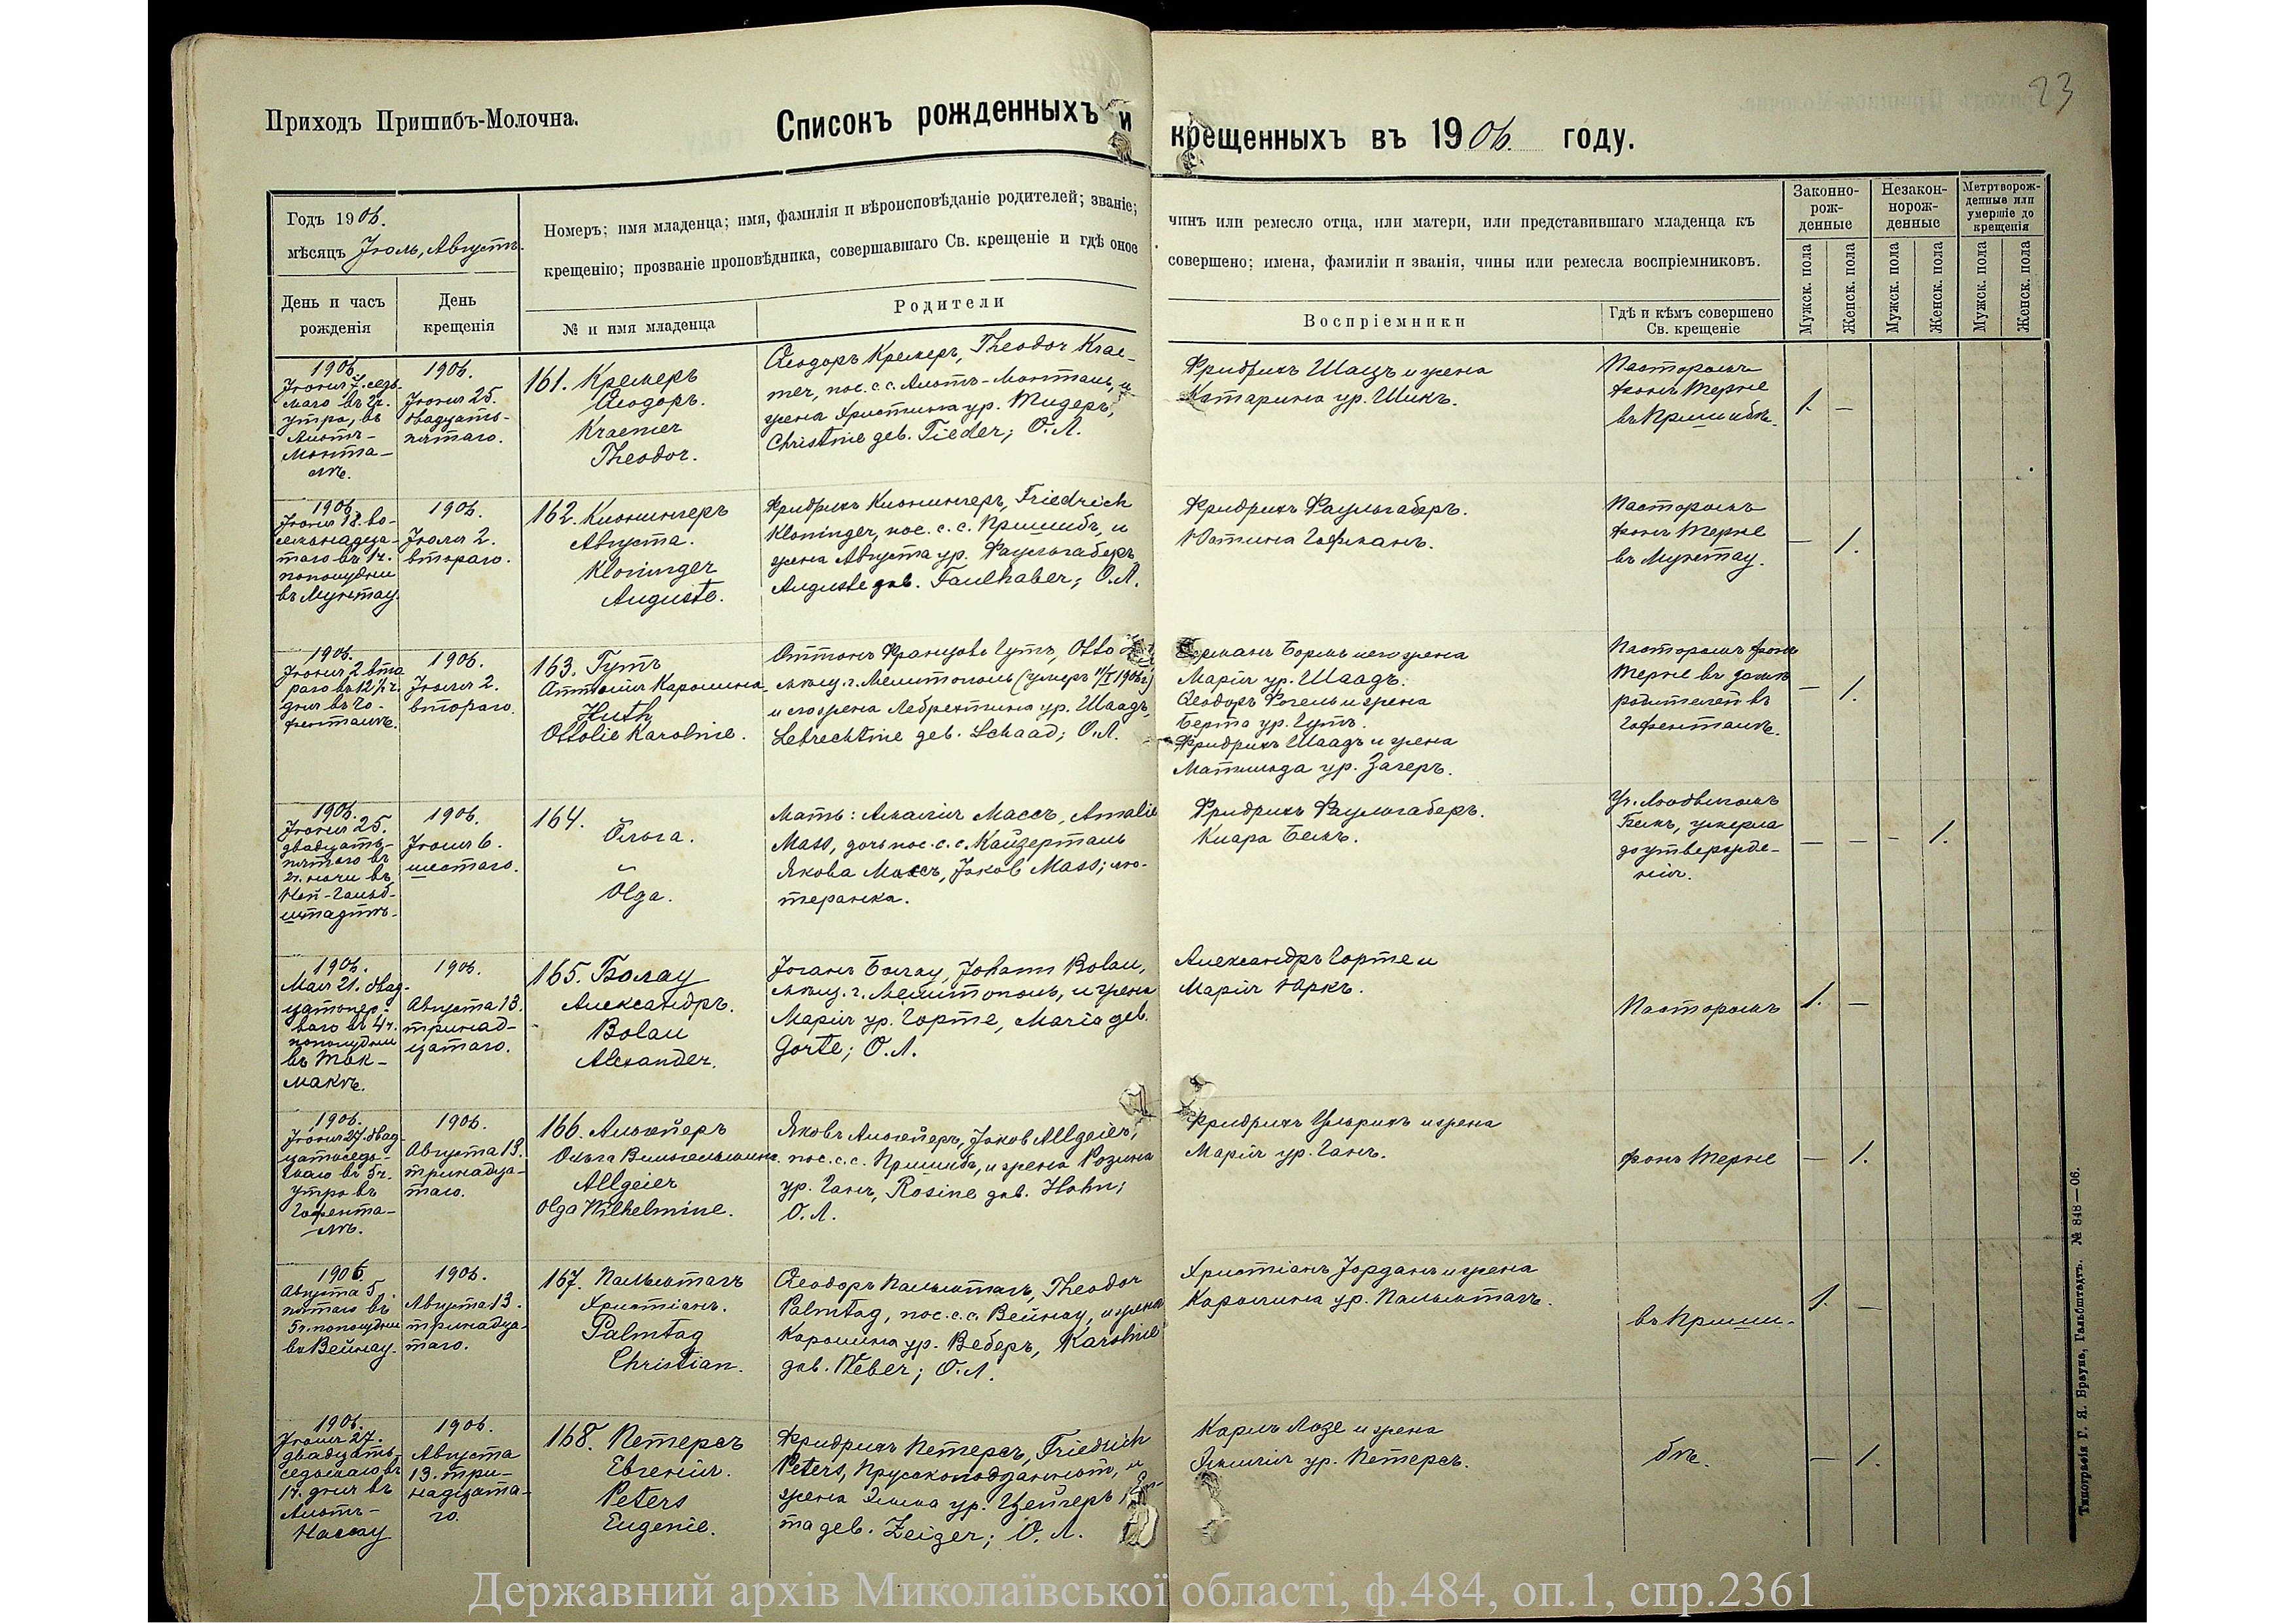 23
Приходъ Пришибъ-Молочна.
Списокъ рожденныхъ и крещенныхъ въ 1906. году.
Годъ 1906.
мѣсяцъ Іюль, Августъ.
Номеръ; имя младенца; имя, фамилія и вѣроисповѣданіе родителей; званіе;
крещенію; прозваніе проповѣдника, совершавшаго Св. крещеніе и гдѣ оное
чинъ или ремесло отца, или матери, или представившаго младенца къ
совершено; имена, фамиліи и званія, чины или ремесла воспріемниковъ.
Законно-
рож-
денные
Незакон-
норож-
денные
Метртворож-
денные или
умершіе до
крещенія
Мужск. пола
Женск. пола
Мужск. пола
Женск. пола
Мужск. пола
Женск. пола
День и часъ
рожденія
День
крещенія
№ и имя младенца
Родители
Воспріемники
Гдѣ и кѣмъ совершено
Св. крещеніе
1906.
Іюня 7. седь-
маго въ 2ч.
утра, въ
Альтъ-
Монта-
лѣ.
1906.
Іюня 25.
двадцать-
пятаго.
161. Кремеръ
Ѳеодоръ.
Kraemer
Theodor.
Ѳеодоръ Кремеръ, Theodor Krae-
mer, пос. с. с. Альтъ-Монталь, и
жена Христина ур. Тидеръ,
Christine geb. Tieder; О. Л.
Фридрихъ Шацъ и жена
Катарина ур. Шикъ.
Пасторомъ
фонъ Терне
въ Пришибѣ.
1. —
1906.
Іюня 18. во-
семьнадца-
таго въ 1ч.
пополудни
въ Мунтау.
1906.
Іюля 2.
втораго.
162. Клонингеръ
Августа.
Kloninger
Auguste.
Фридрихъ Клонингеръ, Friedrich
Kloninger, пос. с. с. Пришибъ, и
жена Августа ур. Фаульгаберъ,
Auguste geb. Faulhaber; О. Л.
Фридрихъ Фаульгаберъ.
Юстина Гофманъ.
Пасторомъ
фонъ Терне
въ Мунтау.
— 1.
1906.
Іюня 2 вто
раго въ 12½ ч.
дня въ Го-
фенталѣ.
1906.
Іюля 2.
втораго.
163. Гутъ
Оттолія Каролина.
Huth
Ottolie Karoline.
Оттонъ Францовъ Гутъ, Otto
мѣщ. г. Мелитополь (умеръ 11/I 1906 г.)
и его жена Лебрехтина ур. Шаадъ,
Lebrechtine geb. Schaad; О. Л.
Германъ Бормъ и его жена
Марія ур. Шаадъ.
Ѳеодоръ Фогель и жена
Берта ур. Гутъ.
Фридрихъ Шаадъ и жена
Матильда ур. Загеръ.
Пасторомъ фонъ
Терне въ домѣ
родителей въ
Гофенталѣ.
— 1.
1906.
Іюня 25.
двадцать-
пятаго въ
2ч. ночи въ
Ней-Гальб-
штадтѣ.
1906.
Іюля 6.
шестаго.
164.
Ольга.
Olga.
Мать: Амалія Массъ, Amalie
Mass, дочь пос. с. с. Кайзерталь
Якова Массъ, Jakob Mass; лю-
теранка.
Фридрихъ Фаульгаберъ.
Клара Бекъ.
Уч. Людвигомъ
Бекъ, умерла
до утвержде-
нія.
— — — 1.
1906.
Мая 21. двад-
цатопер-
ваго въ 4ч.
пополудни
въ Ток-
макѣ.
1906.
Августа 13.
тринад-
цатаго.
165. Болау
Александръ.
Bolau
Alexander.
Іоганъ Болау, Johann Bolau,
мѣщ. г. Мелитополь, и жена
Марія ур. Горте, Maria geb.
Gorte; О. Л.
Александръ Горте и
Марія Юркъ.
Пасторомъ
1. —
1906.
Іюня 27. двад-
цатоседь-
маго въ 5ч.
утра въ
Гофента-
лѣ.
1906.
Августа 13.
тринадца-
таго.
166. Альгейеръ
Ольга Вильгельмина.
Allgeier
Olga Wilhelmine.
Яковъ Альгейеръ, Jakob Allgeier,
пос. с. с. Пришибъ, и жена Розина
ур. Ганъ, Rosine geb. Hahn;
О. Л.
Фридрихъ Ульрихъ и жена
Марія ур. Ганъ.
фонъ Терне
— 1.
1906.
Августа 5.
пятаго въ
5ч. пополудни
въ Вейнау.
1906.
Августа 13.
тринадца-
таго.
167. Пальмтагъ
Христіанъ.
Palmtag
Christian.
Ѳеодоръ Пальмтагъ, Theodor
Palmtag, пос. с. с. Вейнау, и жена
Каролина ур. Веберъ, Karoline
geb. Weber; О. Л.
Христіанъ Іорданъ и жена
Каролина ур. Пальмтагъ.
въ Приши-
1. —
1906.
Іюля 27.
двадцать-
седьмаго въ
1ч. дня въ
Альтъ-
Нассау
1906.
Августа
13. три-
надцата-
го.
168. Петерсъ
Евгенія.
Peters
Eugenie.
Фридрихъ Петерсъ, Friedrich
Peters, Прусскоподданный, и
жена Эмма ур. Цейгеръ,
ma geb. Zeiger; О. Л.
Карлъ Лозе и жена
Эмилія ур. Петерсъ.
бѣ.
— 1.
Типографія Г. Я. Брауна, Гальбштадтъ. № 848—06.
Державний архів Миколаївської області, ф.484, оп.1, спр.2361